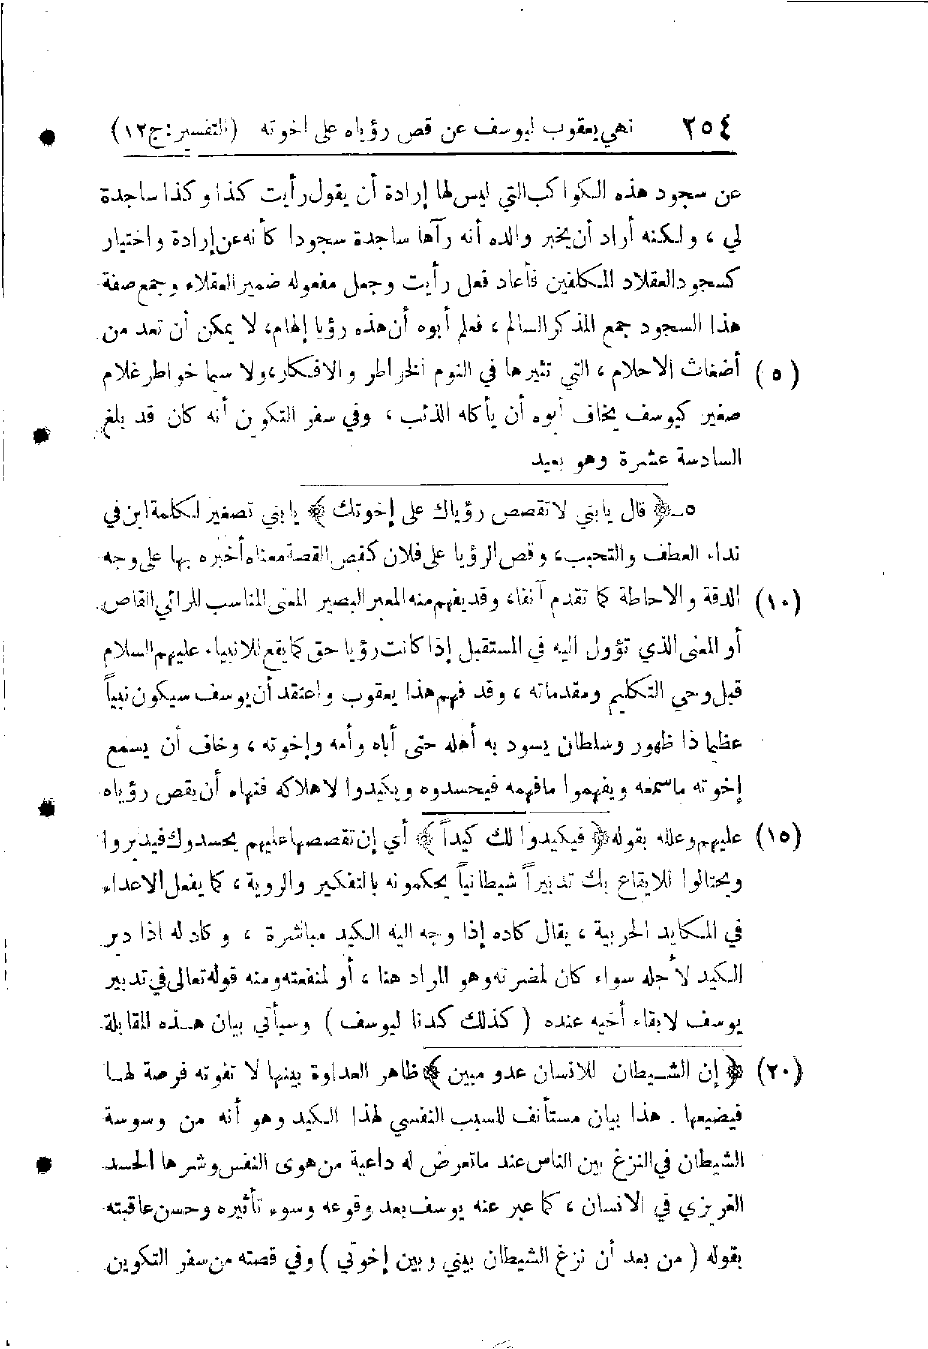 ٢٥٤ نهي يعقوب ليوسف عن قص رؤياه على اخوته (التفسير: ج١٢)
عن سجود هذه الكواكب التي ليس لها إرادة أن يقول رأيت كذا وكذا ساجدة
لي ، ولكنه أراد أن يخبر والده أنه رآها ساجدة سجودا كأنه عن إرادة واختيار
كسجود العقلاد المكلفين فأعاد فعل رأيت وجعل مفعوله ضمير العقلاء وجمع صفة
هذا السجود جمع المذكر السالم ، فعلم أبوه أن هذه رؤيا إلهام، لا يمكن أن تعد من
(٥) أضغاث الاحلام ، التي تثيرها في النوم الخراطر والافكار، ولا سيما خواطر غلام
صغير كيوسف يخاف أبوه أن يأكله الذئب ، وفي سفر التكوين أنه كان قد بلغ
السادسة عشرة وهو بعيد
٥ـ﴿ قال يابني لا تقصص رؤياك على إخوتك ﴾ يابني تصغير لكلمة ابن في
نداء العطف والتحبب، وقص الرؤيا على فلان كقص القصة معناه أخبره بها على وجه
(١٠) الدقة والاحاطة كما تقدم آنفا، وقد يفهم منه المعبر البصير المعنى المناسب للرائي القاص
أو المعنى الذي تؤول اليه في المستقبل إذا كانت رؤيا حق كما يقع للانبياء عليهم السلام
قبل وحي التكليم ومقدماته ، وقد فهم هذا يعقوب واعتقد أن يوسف سيكون نبياً
عظيما ذا ظهور وسلطان يسود به أهله حتى أباه وأمه وإخوته ، وخاف أن يسمع
إخوته ماسمعه ويفهموا مافهمه فيحسدوه ويكيدوا لاهلاكه فنهاه أن يقص رؤياه
(١٥) عليهم وعلله بقوله ﴿ فيكيدوا لك كيداً ﴾ أي إن تقصصها عليهم يحسدوك فيدبروا
ويحتالوا للايقاع بك تدبيراً شيطانياً يحكمونه بالتفكير والروية ، كما يفعل الاعداء
في المكايد الحربية ، يقال كاده إذا وجه اليه الكيد مباشرة ، وكاد له اذا دبر
الكيد لأجله سواء كان لمضرته وهو المراد هنا ، أو لمنفعته ومنه قوله تعالى في تدبير
يوسف لابقاء أخيه عنده ( كذلك كدنا ليوسف ) وسيأتي بيان هذه المقابلة
(٢٠) ﴿ إن الشيطان للانسان عدو مبين ﴾ ظاهر العداوة بينها لا تفوته فرصة لها
فيضيعها . هذا بيان مستأنف للسبب النفسي لهذا الكيد وهو أنه من وسوسة
الشيطان في النزغ بين الناس عند ماتعرض له داعية من هوى النفس وشرها الحسد
الغريزي في الانسان ، كما عبر عنه يوسف بعد وقوعه وسوء تأثيره وحسن عاقبته
بقوله ( من بعد أن نزغ الشيطان بيني وبين إخوتي ) وفي قصته من سفر التكوين